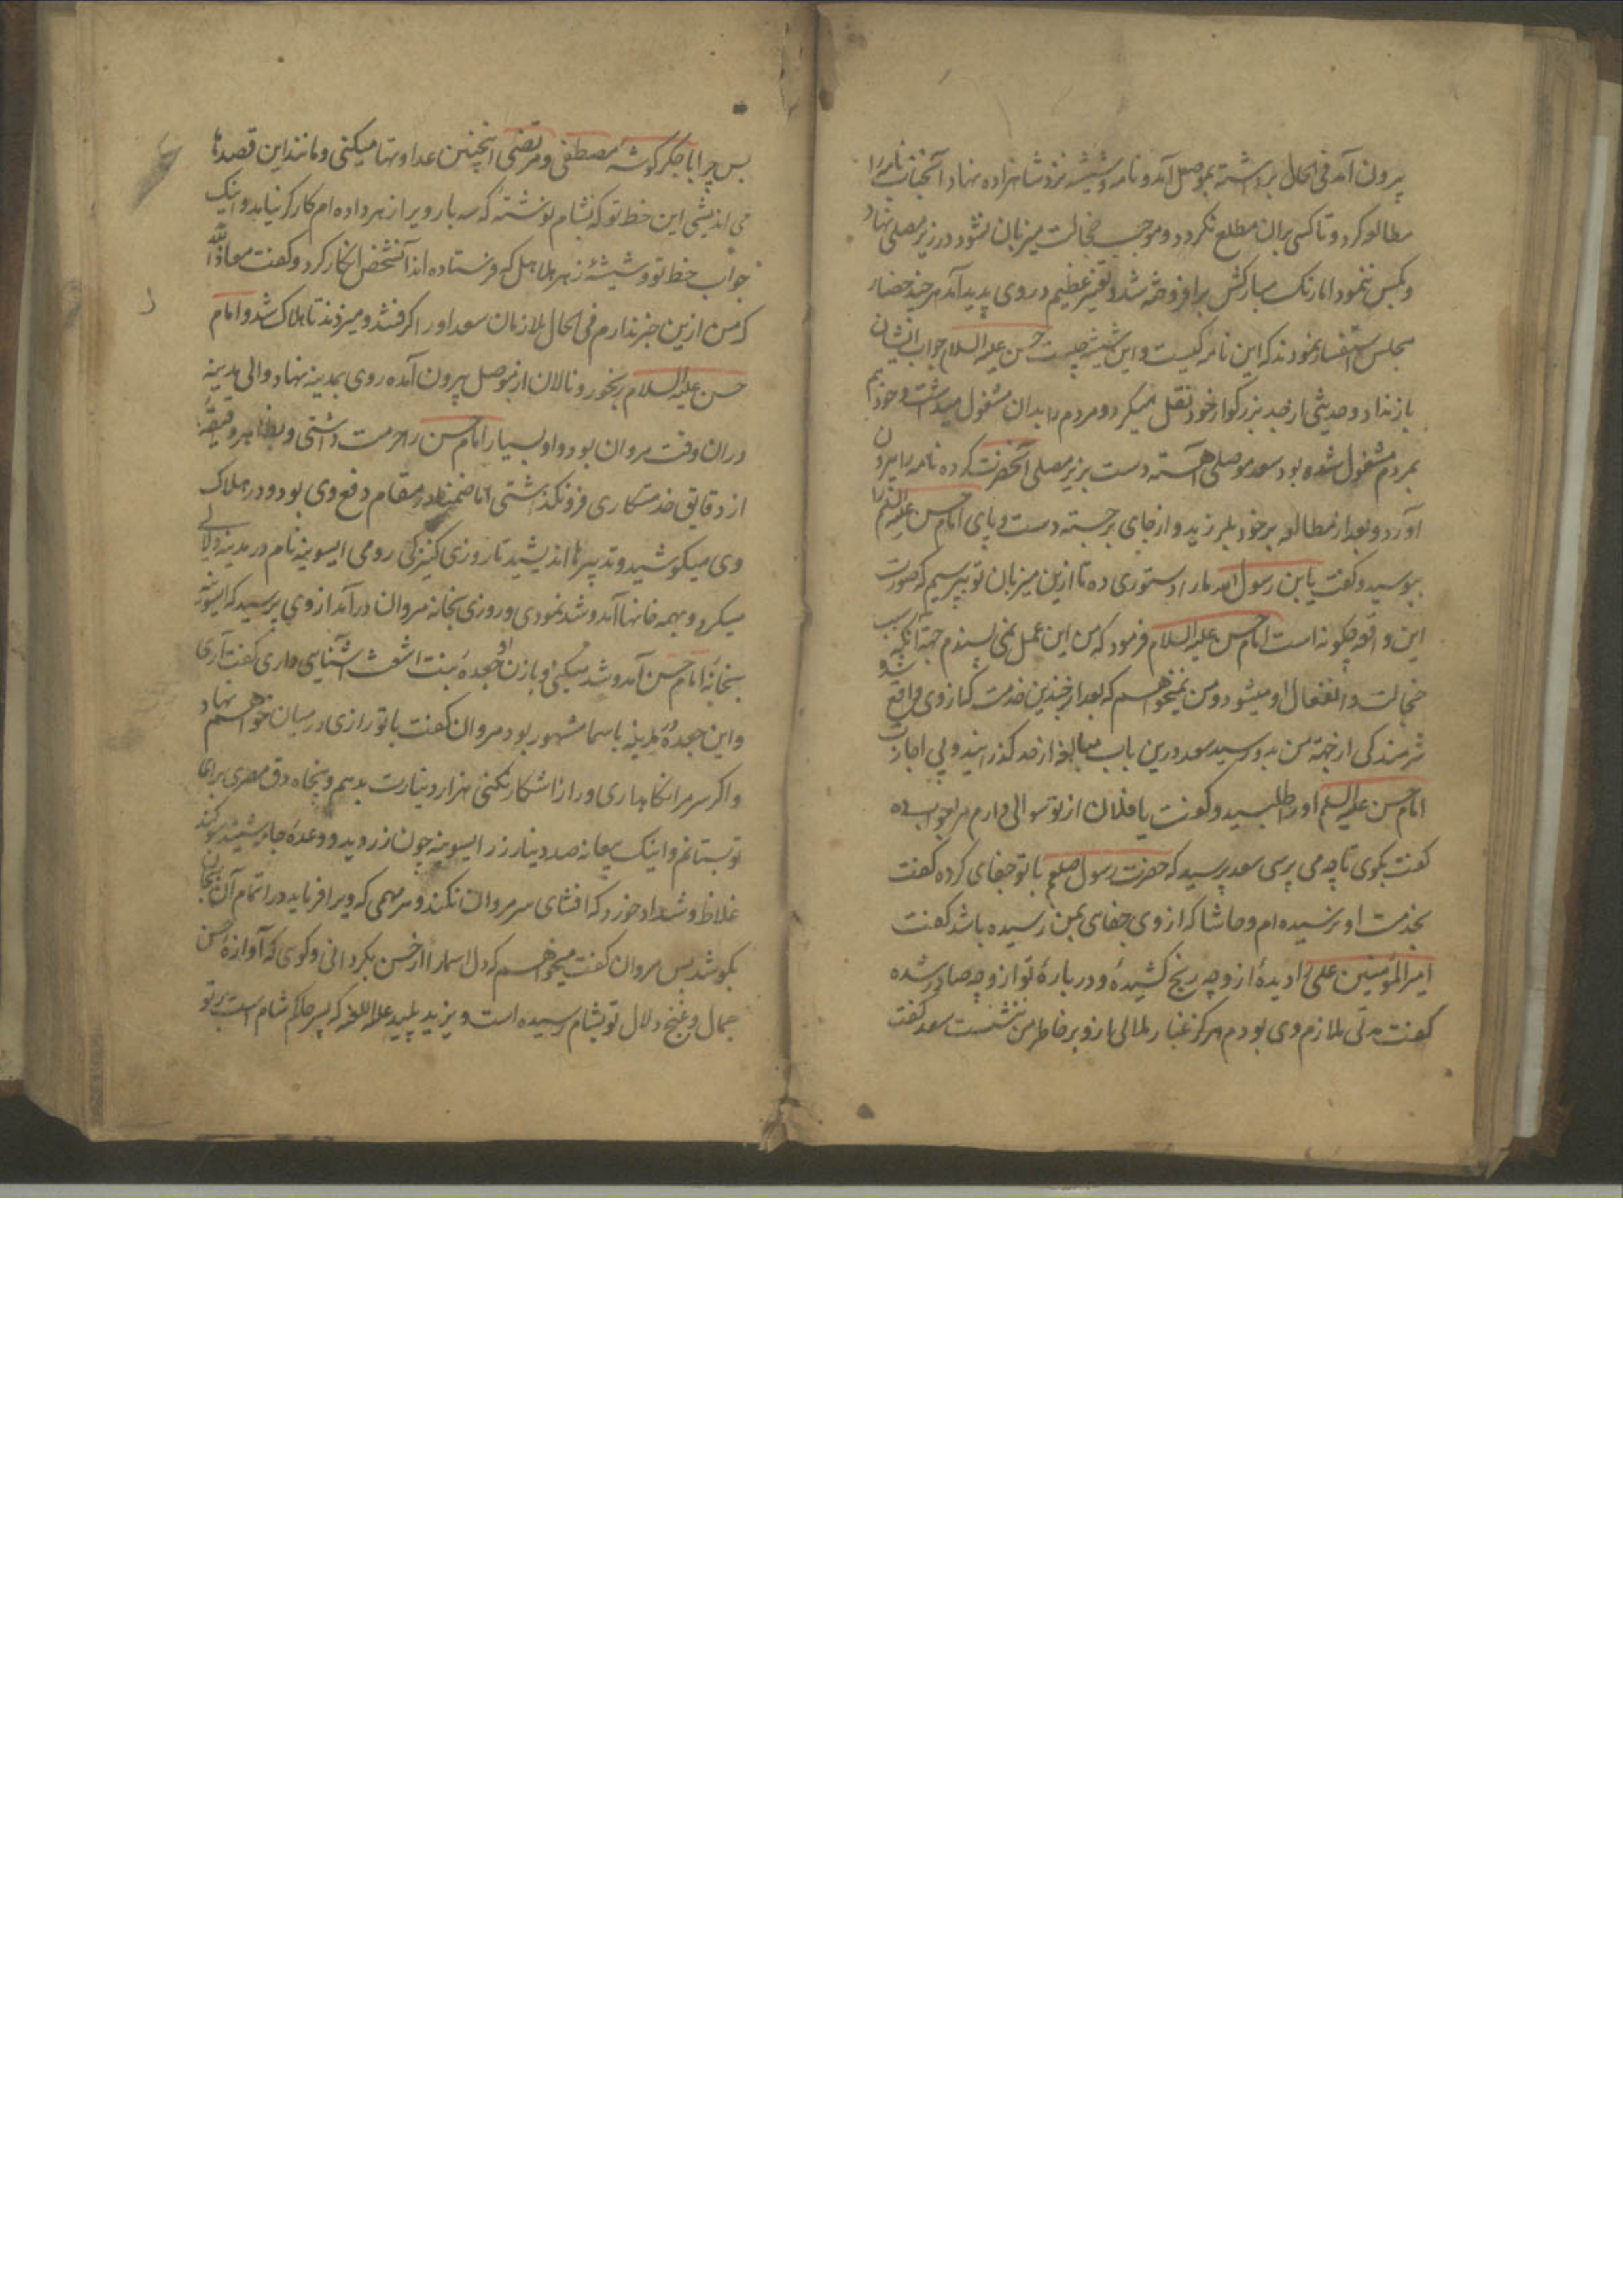 بیرون آمد فی الحال برداشته بموصل آمد و نامه و شیشه نزد شاهزاده نهاد آنجناب نامه را
مطالعه کرد و تا کسی بران مطلع نکردد و موجب خجالت میزبان نشود در زیر مصلی نهاد
و بکس ننمود اما رنک مبارکش برافروخته شد و تغیر عظیم در وی پدید آمد هر چند حضار
مجلس استفسار نمودند که این نامه کیست و این شیشه چیست حسن علیه السلام جواب ایشان
باز نداد و حدیثی از جد بزرکوار خود نقل میکرد و مردم را بدان مشغول میداشت و خود هم
بمردم مشغول شده بود سعد موصلی آهسته دست بزیر مصلی آنحضرت کرده نامه را بیرون
آورد و بعد از مطالعه بر خود بلرزید و از جای برجسته دست و پای امام حسن علیه السلم را
ببوسید و کفت یابن رسول الله ما را دستوری ده تا ازین میزبان تو بپرسیم که صورت
این واقعه چکونه است امام حسن علیه السلام فرمود که من این عمل نمی پسندم جهة آنکه سبب
خجالت و انفعال او میشود و من نمیخواهم که بعد از چندین خدمت که از وی واقع شد و
شرمندکی از جهة من بدو رسید سعد درین باب مبالغه از حد کذرانید و بی اجازت
امام حسن علیه السلم او را طلبید و کفت یا فلان از تو سوالی دارم مرا جواب ده
کفت بکوی تا چه می پرسی سعد پرسید که حضرت رسول صلعم با تو جفای کرده کفت
بخدمت او نرسیده ام و حاشا که از وی جفای بمن رسیده باشد کفت
امیر المؤمنین علی را دیدهٔ از و چه رنج کشیدهٔ و در بارهٔ تو از و چه صادر شده
کفت مدتی ملازم وی بودم هرکز غبار ملالی ازو بر خاطر من ننشست سعد کفت
بس چرا با جکر کوشه مصطفی و مرتضی اینچنین عداوتها میکنی و مانند این قصدها
می اندیشی این خط تو که بشام نوشته که سه بار ویرا زهر داده ام کارکر نیامد و اینک
جواب خط تو و شیشهٔ زهر هلاهل که فرستاده اند آنشخص انکار کرد و کفت معاذ الله
که من ازین خبر ندارم فی الحال ملازمان سعد او را کرفتند و میزدند تا هلاک شد و امام
حسن علیه السلام رنجور و نالان از موصل بیرون آمده روی بمدینه نهاد و والی مدینه
دران وقت مروان بود و او بسیار امام حسن را حرمت داشتی و بظاهر دقیقهٔ
از دقایق خدمتکاری فرو نکذاشتی اما ضمنا در مقام دفع وی بود و در هلاک
وی میکوشید و تدبیرها اندیشید تا روزی کنیزکی رومی ایسونیه نام در مدینه دلالی
میکرد و بهمه خانها آمد و شد نمودی و روزی بخانه مروان درآمد از وی پرسید که ایسونیه
بخانهٔ امام حسن آمد و شد میکنی و با زن او جعدهٔ بنت اشعث آشنایی داری کفت آری
و این جعده در مدینه باسما مشهور بود مروان کفت با تو رازی در میان خواهم نهاد
و اکر سر مرا نکاهداری و راز آشکار نکنی هزار دینارت بدهم و پنجاه دق مصری برای
تو بستانم و اینک بیعانه صد دینار زر ایسونیه چون زر دید و وعدهٔ جامه شنید سوکند
غلاظ و شداد خورد که افشای سر مروان نکند و هر مهمی که ویرا فرماید در اتمام آن بجان
بکوشد بس مروان کفت میخواهم که دل اسما را از حسن بکردانی و کوی که آوازه حسن
جمال و غنج و دلال تو بشام رسیده است و یزید پلید علیه اللعنه که پسر حاکم شام است بر تو